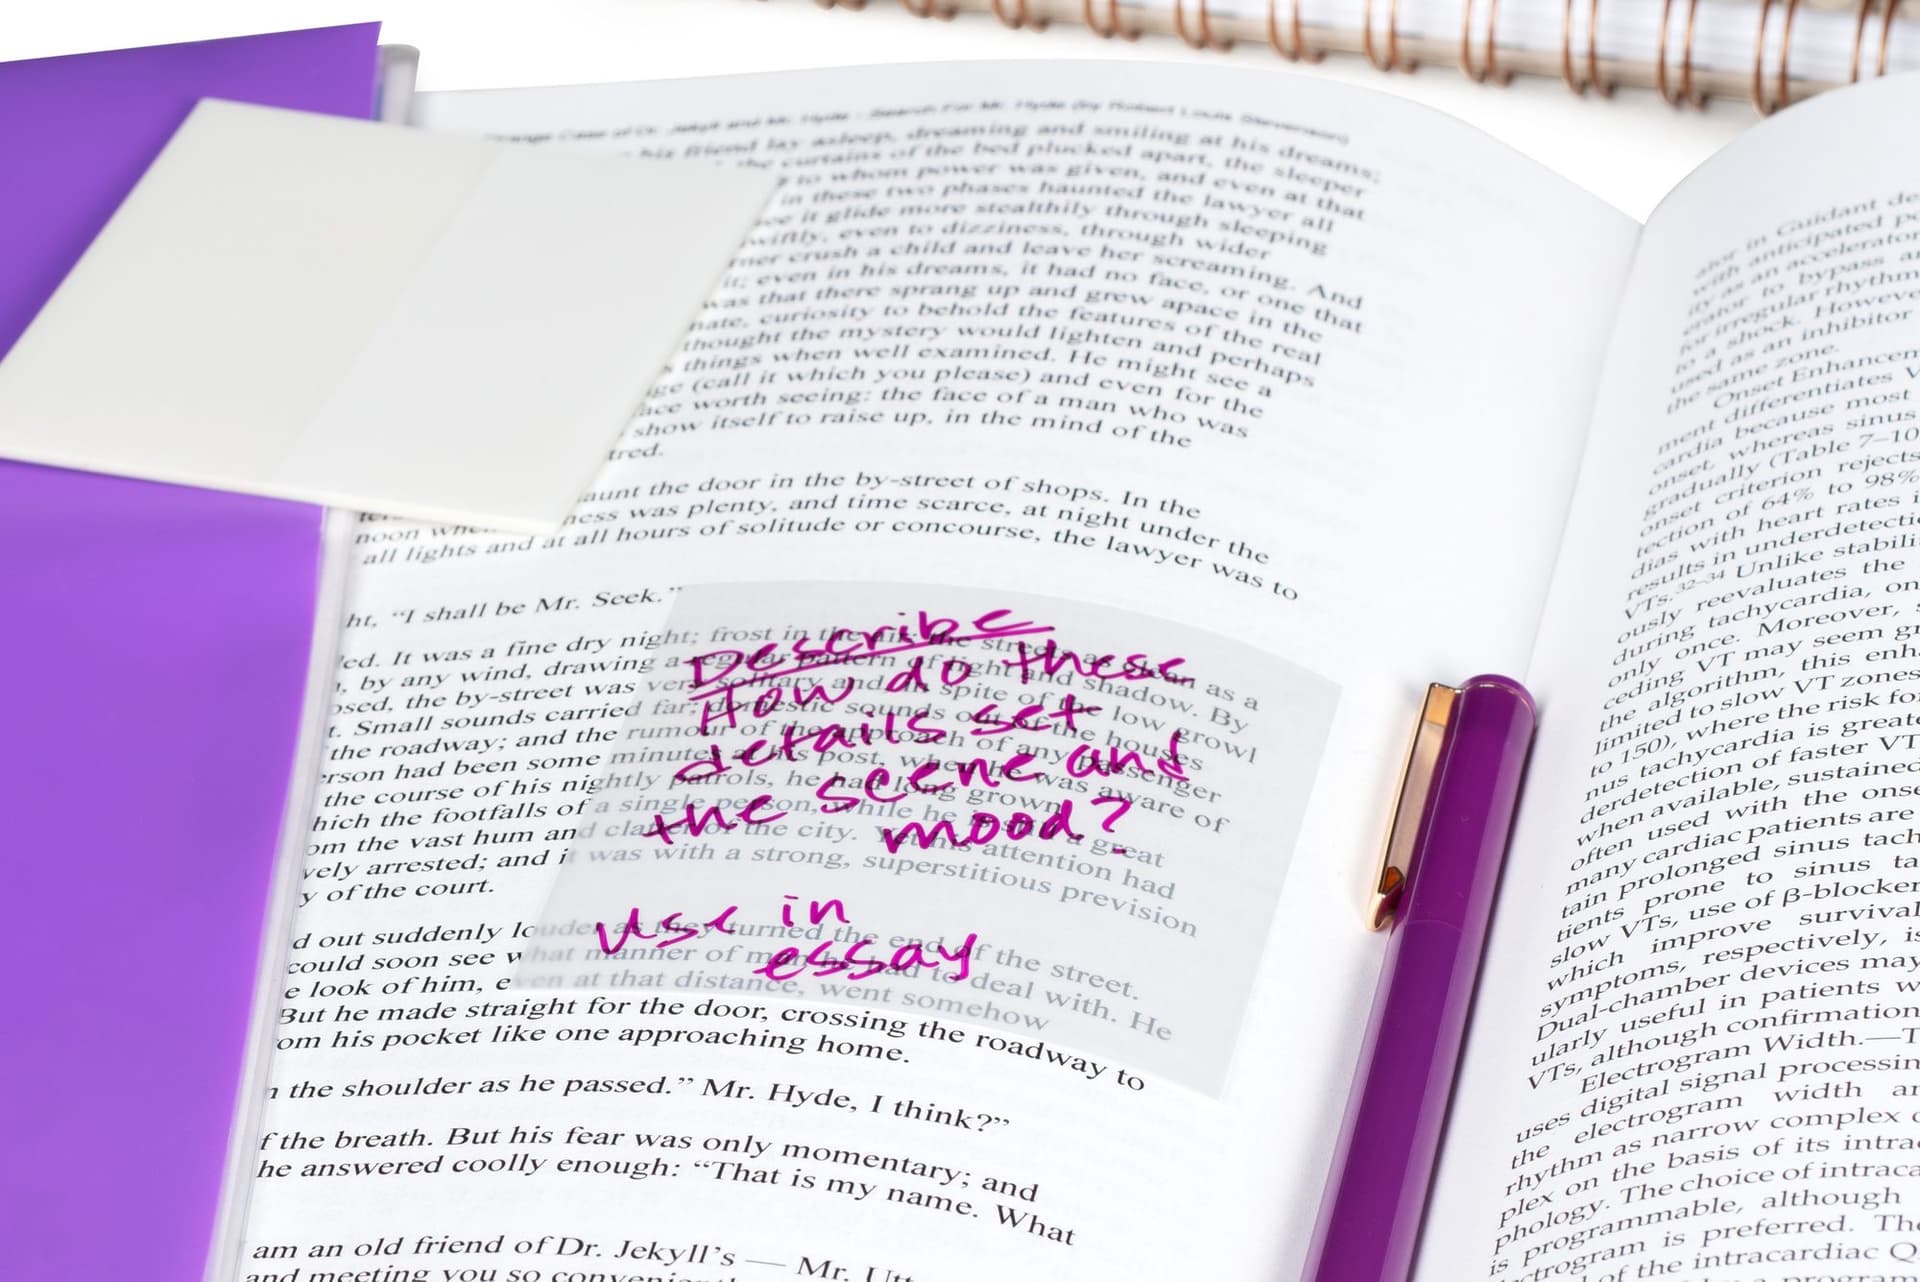 Strange Case of Dr. Jekyll and Mr. Hyde - Search For Mr. Hyde (by Robert Louis Stevenson)
his friend lay asleep, dreaming and smiling at his dreams;
the curtains of the bed plucked apart, the sleeper
to whom power was given, and even at that
in these two phases haunted the lawyer all
see it glide more stealthily through sleeping
swiftly, even to dizziness, through wider
rner crush a child and leave her screaming. And
it; even in his dreams, it had no face, or one that
was that there sprang up and grew apace in the
nate, curiosity to behold the features of the real
thought the mystery would lighten and perhaps
s things when well examined. He might see a
ge (call it which you please) and even for the
ace worth seeing: the face of a man who was
show itself to raise up, in the mind of the
tred.
aunt the door in the by-street of shops. In the
noon when ness was plenty, and time scarce, at night under the
all lights and at all hours of solitude or concourse, the lawyer was to
ht, “I shall be Mr. Seek.”
Describe
How do these
details set
the scene and
mood?
use in
essay
ed. It was a fine dry night; frost in the air; the streets as clean as a
, by any wind, drawing a regular pattern of light and shadow. By
osed, the by-street was very solitary and in spite of the low growl
t. Small sounds carried far; domestic sounds out of the houses
the roadway; and the rumour of the approach of any passenger
erson had been some minutes at his post, when he was aware of
the course of his nightly patrols, he had long grown
hich the footfalls of a single person, while he is still a great
om the vast hum and clatter of the city. Yet his attention had
vely arrested; and it was with a strong, superstitious prevision
y of the court.
d out suddenly louder as they turned the end of the street.
could soon see what manner of man he had to deal with. He
e look of him, even at that distance, went somehow
But he made straight for the door, crossing the roadway to
om his pocket like one approaching home.
n the shoulder as he passed.” Mr. Hyde, I think?”
f the breath. But his fear was only momentary; and
he answered coolly enough: “That is my name. What
am an old friend of Dr. Jekyll’s — Mr. Utt
and meeting you so convenient
ator in Guidant de
with anticipated
ity as an accelerator
erator to bypass
for irregular rhythm
to a shock. However
used as an inhibitor
the same zone.
Onset Enhancem
ment differentiates V
cardia because most
onset, whereas sinus
gradually (Table 7–10
onset criterion rejects
tection of 64% to 98%
dias with heart rates
results in underdetecti
VTs.32–34 Unlike stabili
ously reevaluates the
during tachycardia, on
only once. Moreover,
ceding VT may seem gr
the algorithm, this enh
limited to slow VT zones
to 150), where the risk fo
nus tachycardia is greate
derdetection of faster VT
when available, sustained
often used with the onse
many cardiac patients are
tain prolonged sinus tach
tients prone to sinus ta
slow VTs, use of β-blocker
which improve survival
symptoms, respectively, is
Dual-chamber devices may
ularly useful in patients w
VTs, although confirmation
Electrogram Width.—T
uses digital signal processin
the electrogram width an
rhythm as narrow complex
plex on the basis of its intra
phology. The choice of intraca
is programmable, although
ctrogram is preferred. The
of the intracardiac Q